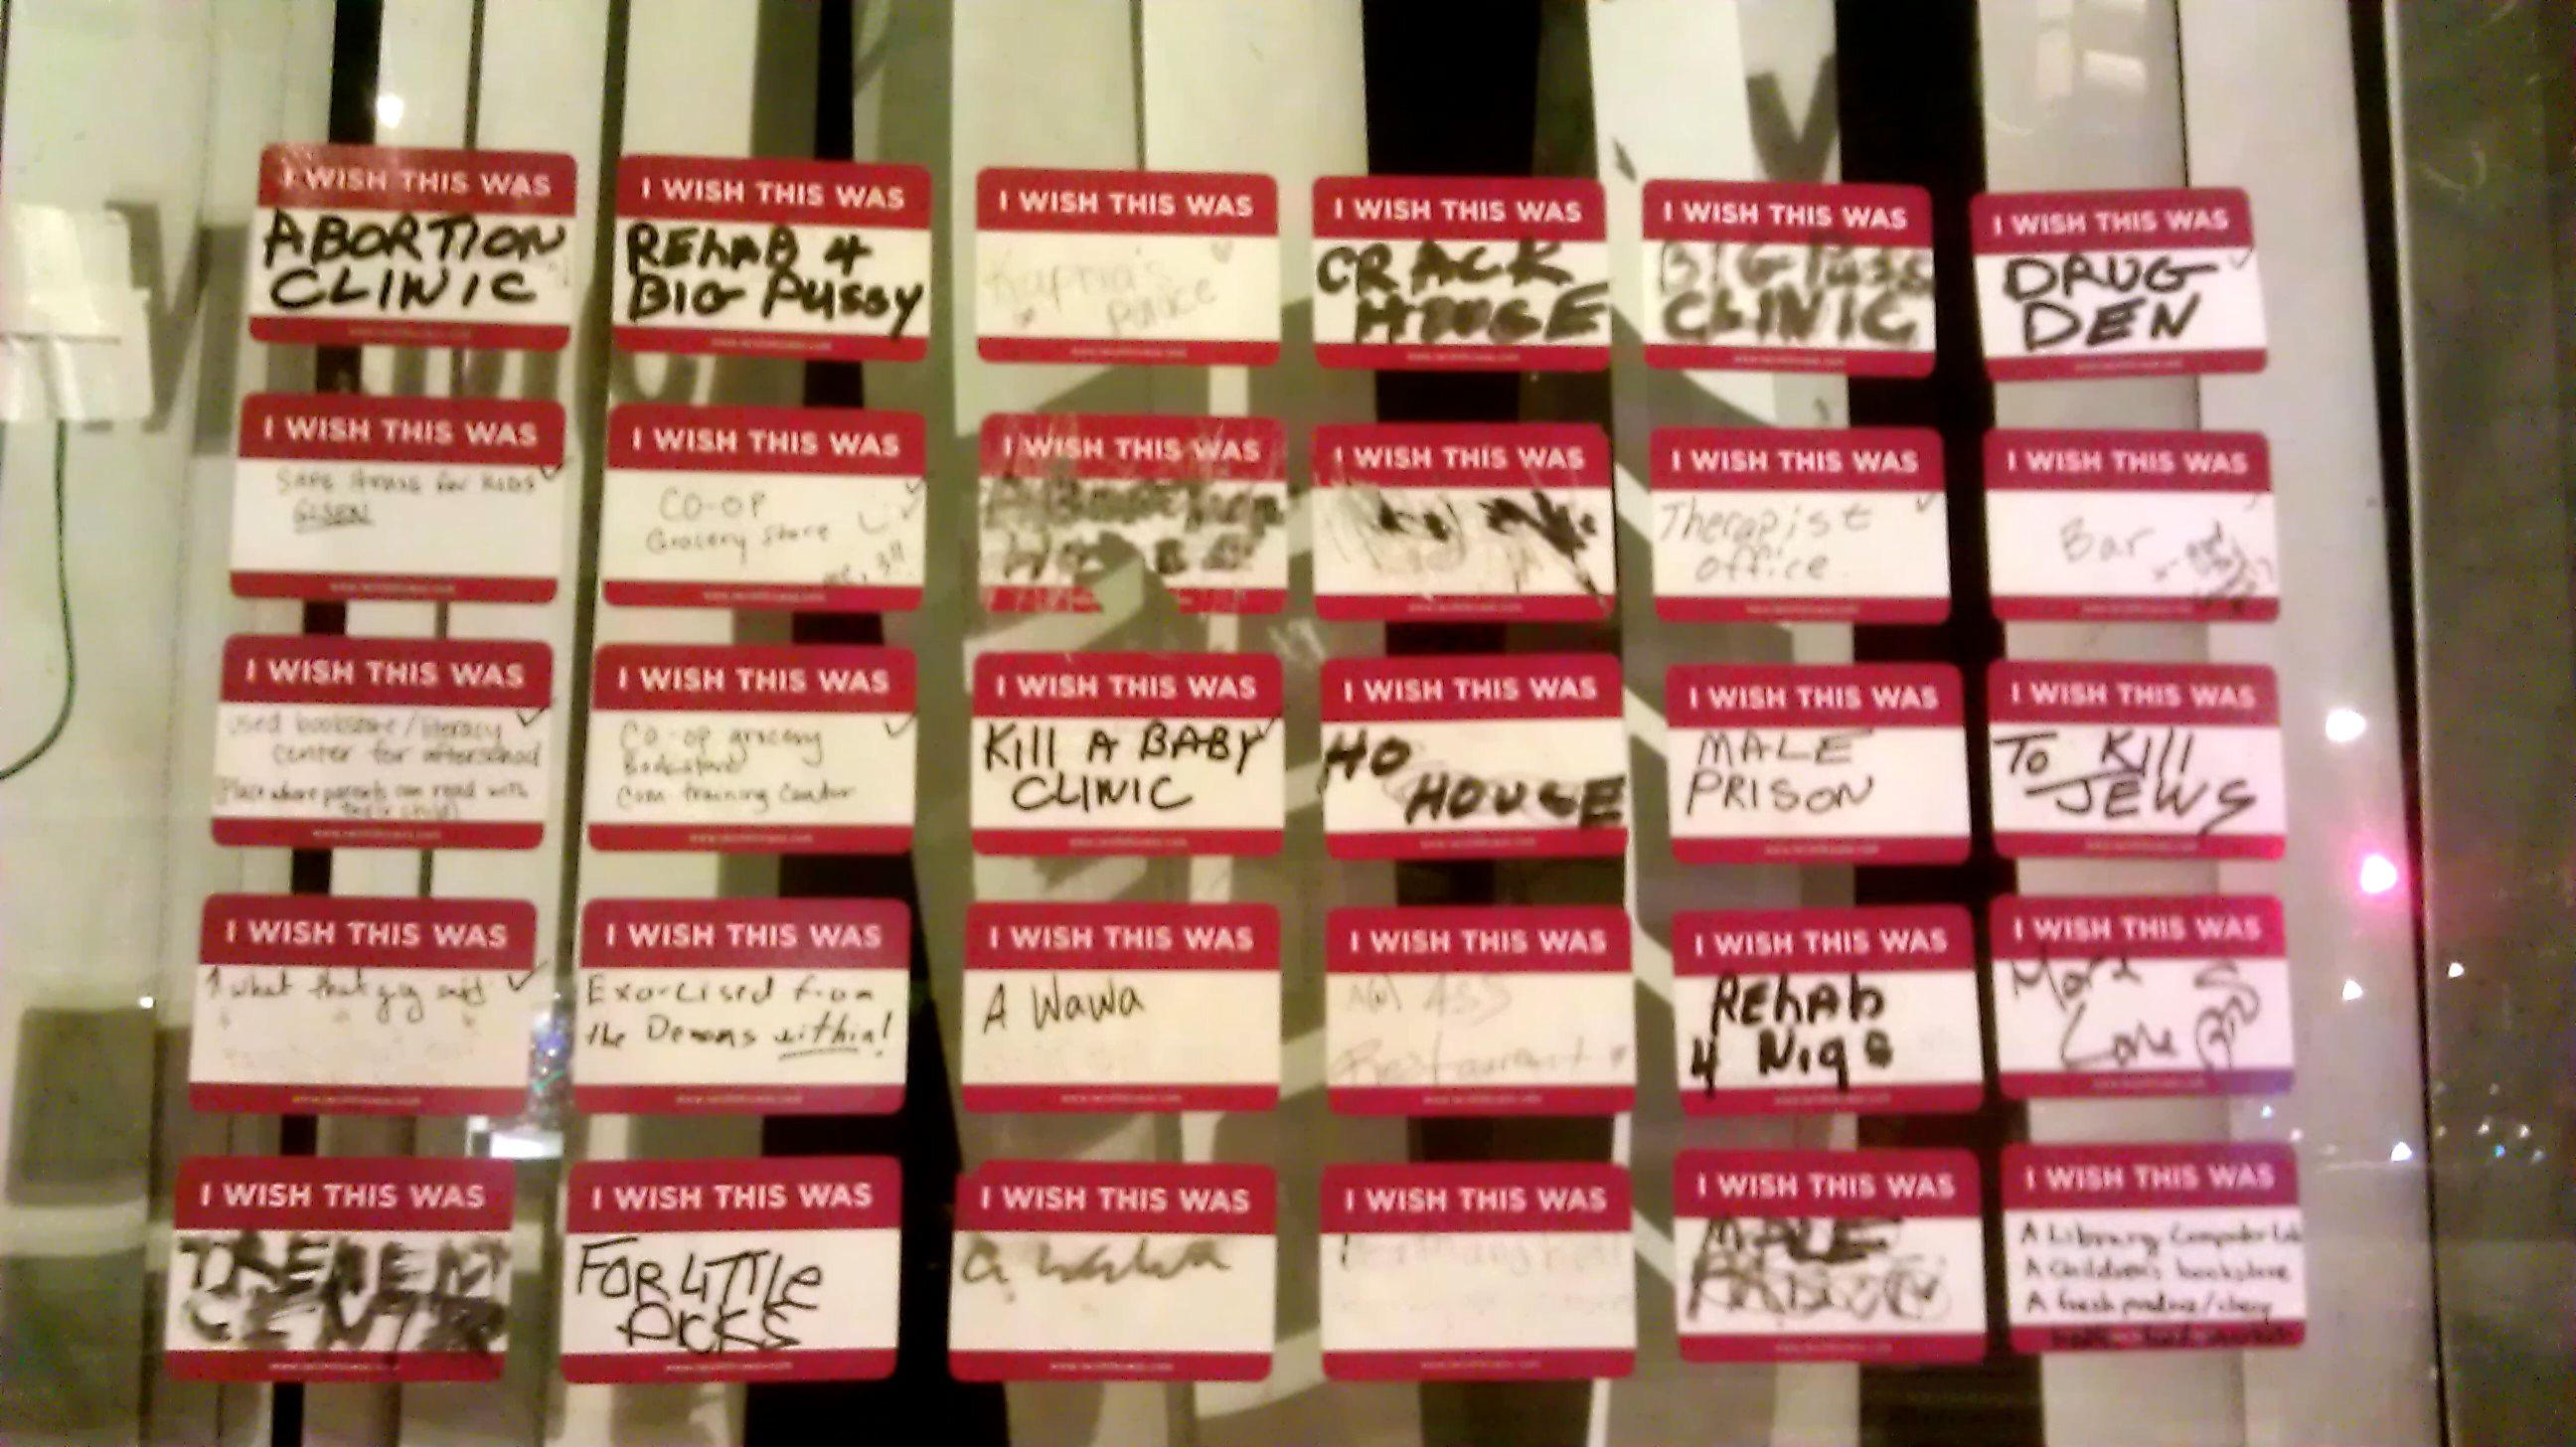 I WISH THIS WAS
ABORTION
CLINIC
I WISH THIS WAS
REhAB 4
BIG PUSSY
I WISH THIS WAS
Palace
I WISH THIS WAS
CRACK
HOUSE
I WISH THIS WAS
BIG
CLINIC
I WISH THIS WAS
DRUG
DEN
I WISH THIS WAS
for KIDS
I WISH THIS WAS
CO-OP
Grocery Store
I WISH THIS WAS
I WISH THIS WAS
I WISH THIS WAS
Therapist
office
I WISH THIS WAS
Bar
I WISH THIS WAS
used bookstore/literacy
center for afterschool
Place where parents can read with
their child
I WISH THIS WAS
Co-op grocery
Bookstore
Com. training Center
I WISH THIS WAS
Kill A BABY
CLINIC
I WISH THIS WAS
HO
HOUSE
I WISH THIS WAS
MALE
PRISON
I WISH THIS WAS
To Kill
JEWS
I WISH THIS WAS
↑ what that guy said
I WISH THIS WAS
Exorcised from
the Demons within!
I WISH THIS WAS
A Wawa
I WISH THIS WAS
Restaurant
I WISH THIS WAS
REhAb
4 Nigs
I WISH THIS WAS
More
Love
I WISH THIS WAS
TREMENT
CENTR
I WISH THIS WAS
FOR LITTLE
DICKS
I WISH THIS WAS
a wawa
I WISH THIS WAS
I WISH THIS WAS
MALE
I WISH THIS WAS
A Library Computer Lab
A Children's bookstore
A fresh produce/cheap